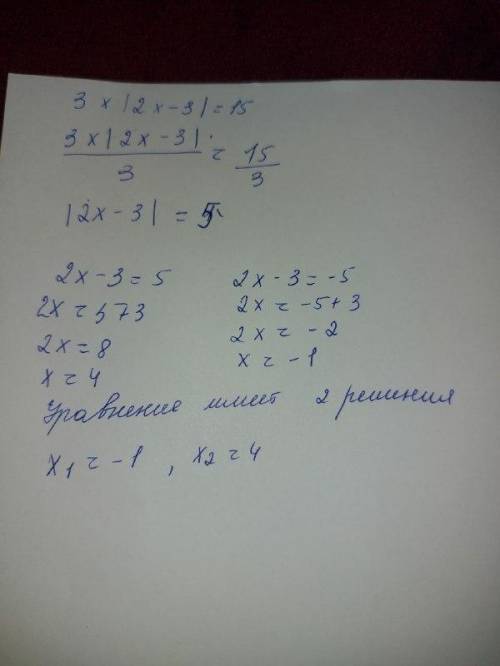 3 × |2x - 3| = 15
3 × |2x - 3| / 3 = 15 / 3
|2x - 3| = 5
2x - 3 = 5
2x = 5 + 3
2x = 8
x = 4
2x - 3 = -5
2x = -5 + 3
2x = -2
x = -1
Уравнение имеет 2 решения
x₁ = -1 , x₂ = 4